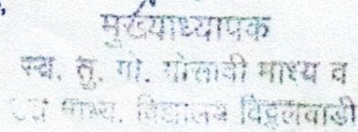 मुख्याध्यापक
स्व. तु. गो. गोसावी माध्य व
उच्च माध्य. विद्यालय विठ्ठलवाडी